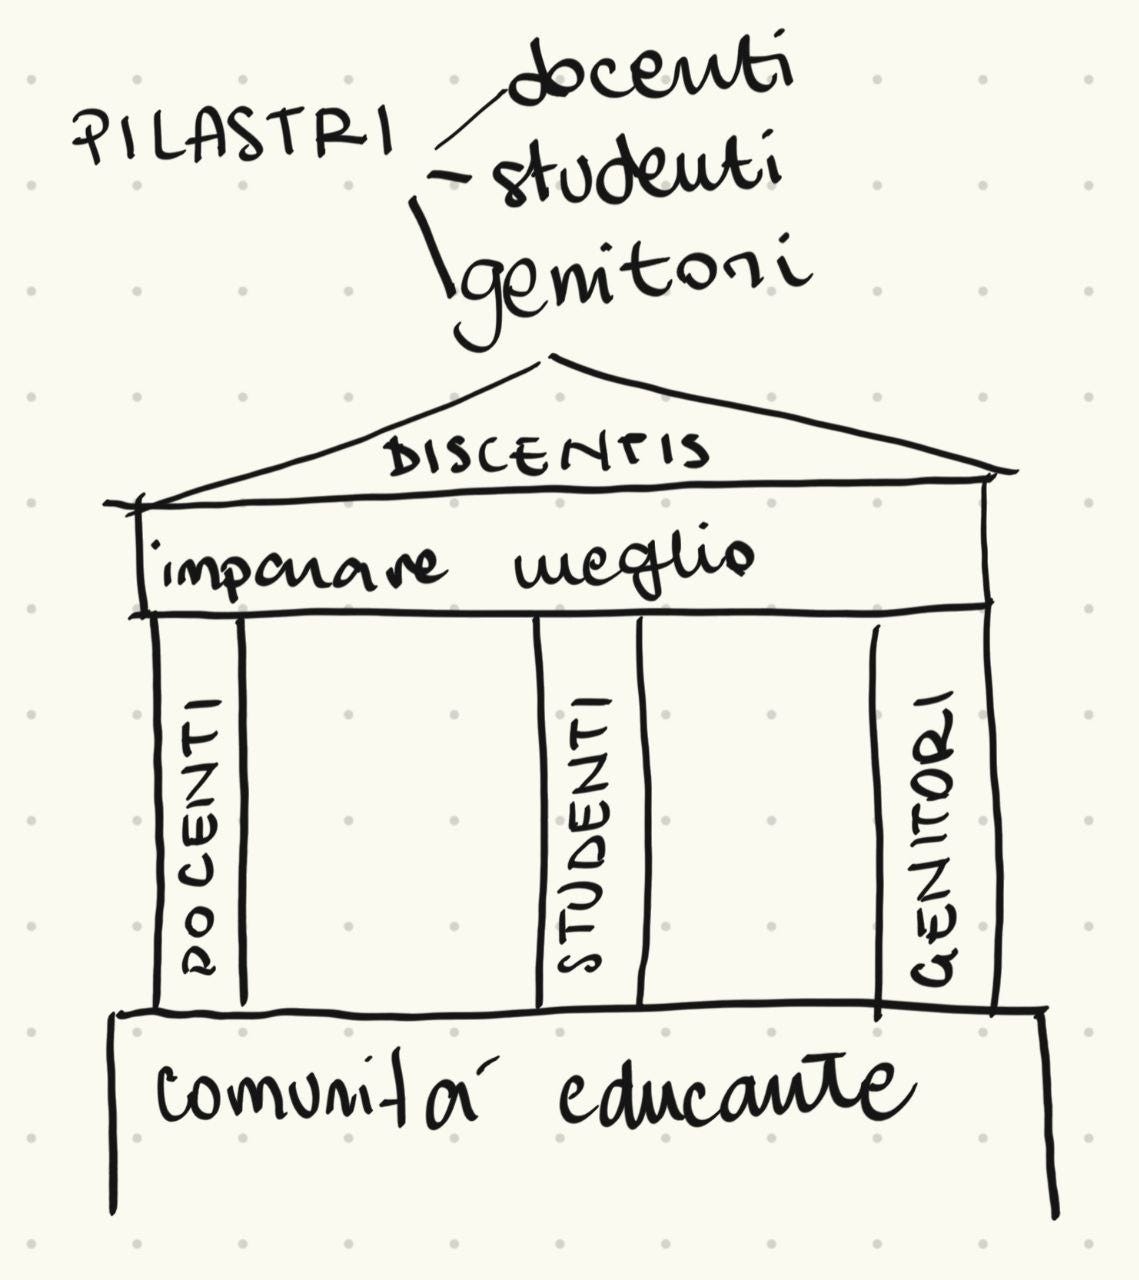 PILASTRI
docenti
- studenti
genitori
DISCENTIS
imparare meglio
DOCENTI
STUDENTI
GENITORI
comunità educante